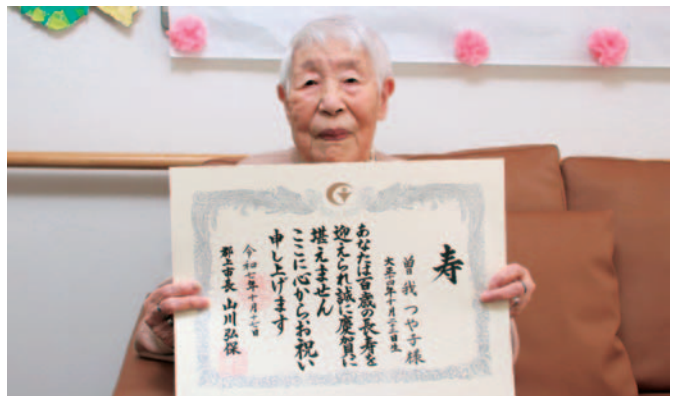 寿
曽我つや子様
大正十四年十月二十三日生
あなたは百歳の長寿を
迎えられ誠に慶賀に
堪えません
ここに心からお祝い
申し上げます
令和七年十月十七日
郡上市長 山川弘保